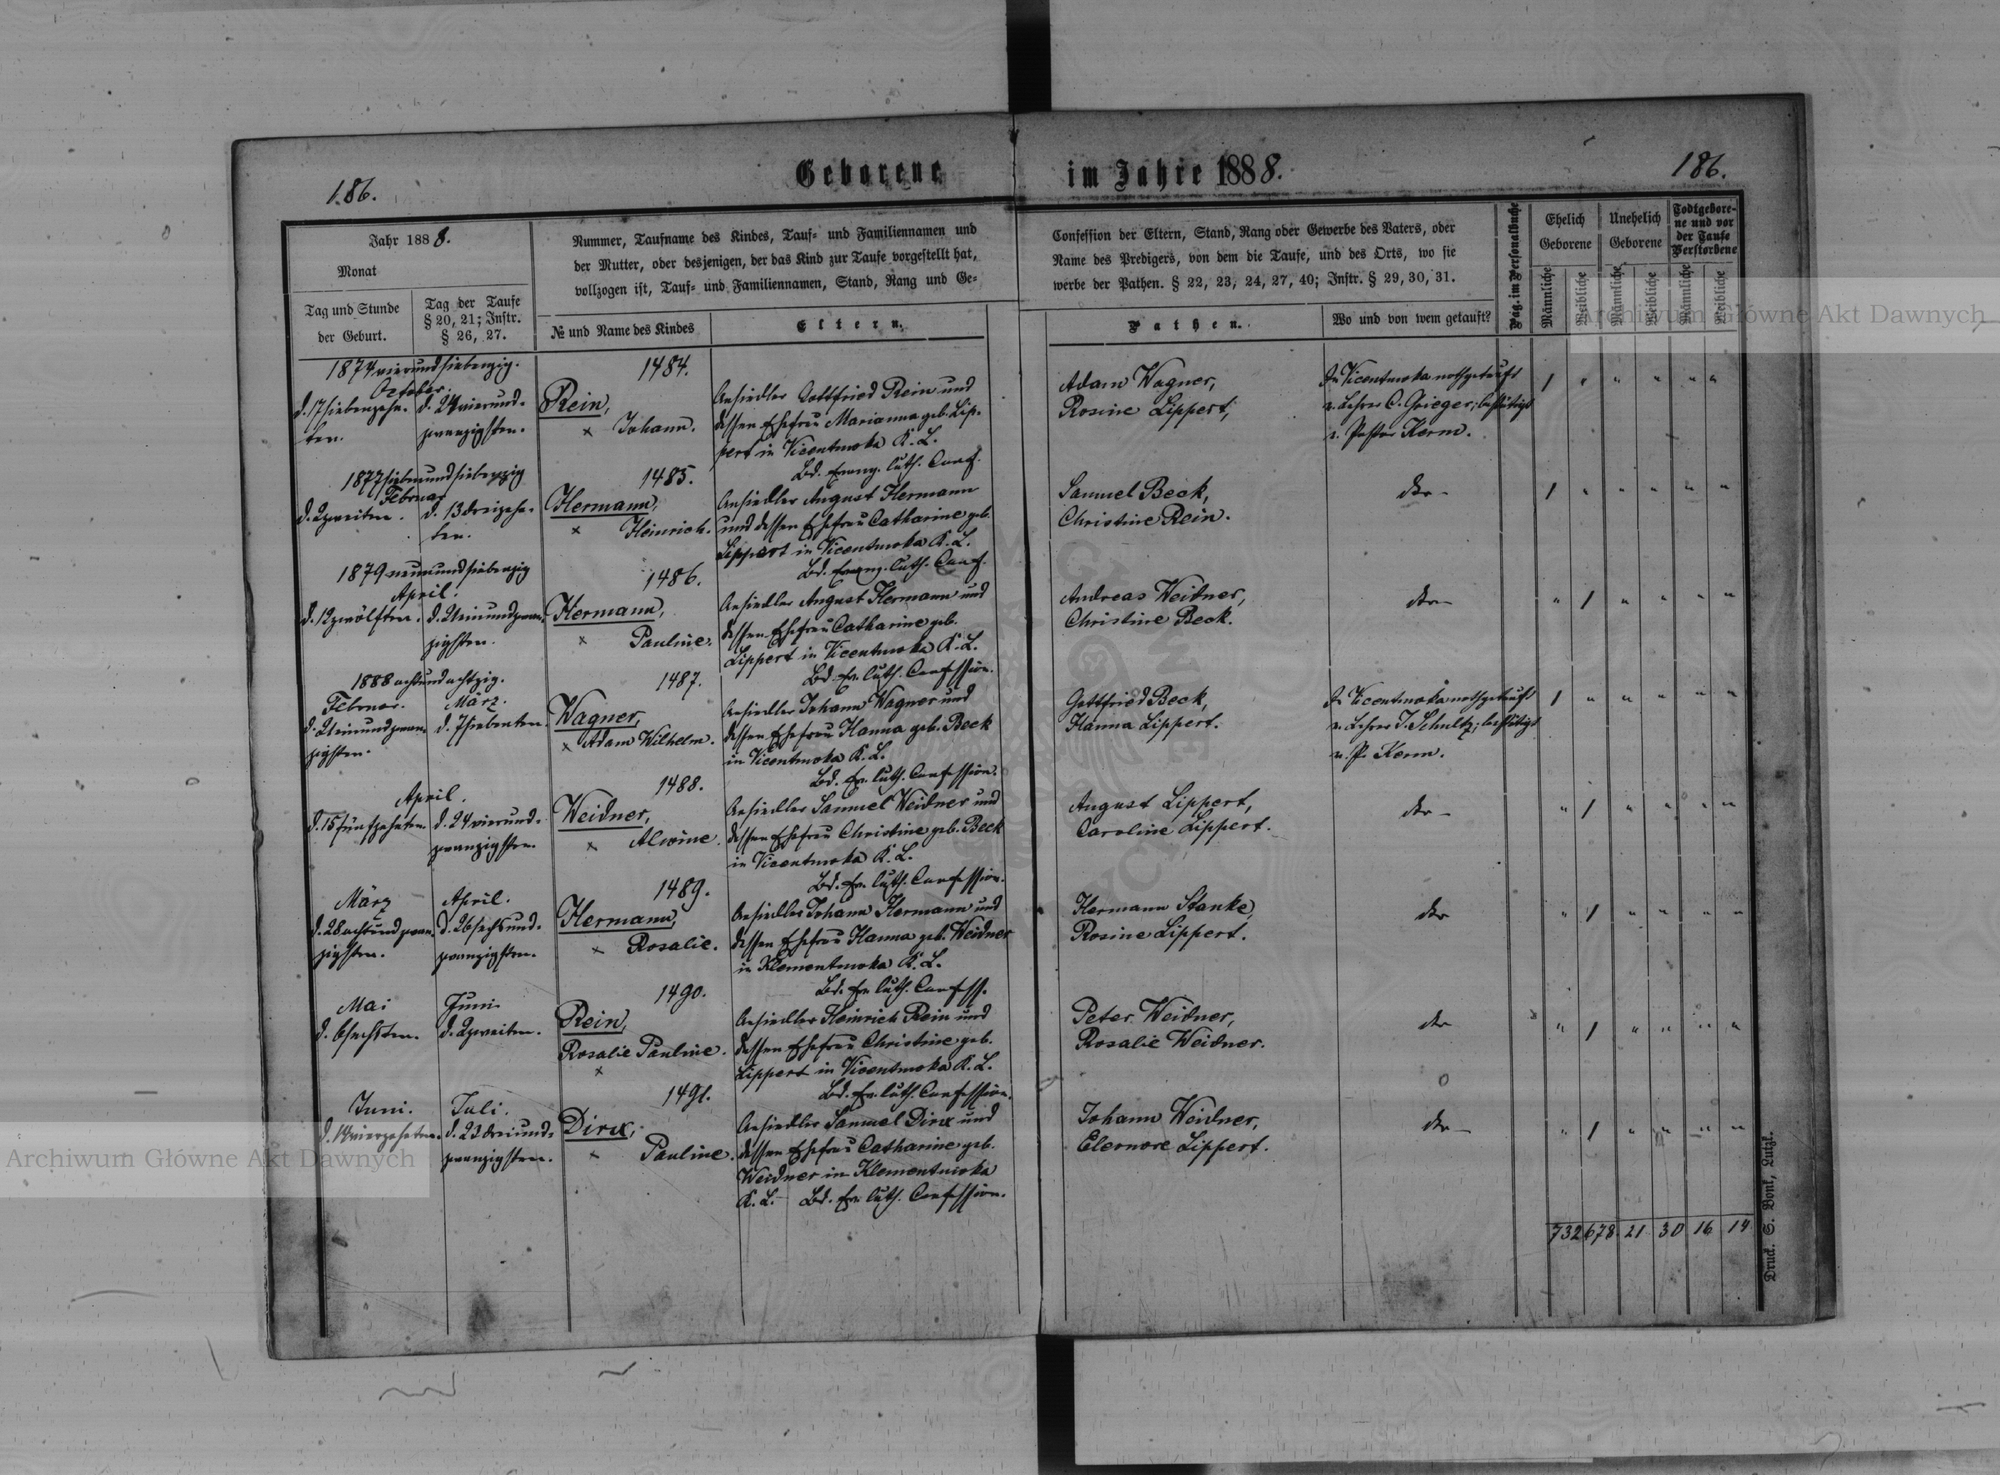 186.
Geborene im Jahre 1888.
186.
Jahr 1888.
Monat
Tag und Stunde
der Geburt.
Tag der Taufe
§ 20, 21; Instr.
§ 26, 27.
Nummer, Taufname des Kindes, Tauf- und Familiennamen und
der Mutter, oder desjenigen, der das Kind zur Taufe vorgestellt hat,
vollzogen ist, Tauf- und Familiennamen, Stand, Rang und Ge-
№ und Name des Kindes
Eltern.
Confession der Eltern, Stand, Rang oder Gewerbe des Vaters, oder
Name des Predigers, von dem die Taufe, und des Orts, wo sie
werbe der Pathen. § 22, 23, 24, 27, 40; Instr. § 29, 30, 31.
Pathen.
Wo und von wem getauft?
Pag. im Personalbuche
Ehelich
Geborene
Unehelich
Geborene
Todtgebore-
ne und vor
der Taufe
Verstorbene
Männliche
Weibliche
Männliche
Weibliche
Männliche
Weibliche
1874 vierundsiebenzig.
October.
d. 17 siebenzehn-
ten.
d. 24 vierund-
zwanzigsten.
1484.
Rein,
x Johann.
Ansiedler Gottfried Rein und
dessen Ehefrau Marianna geb. Lip-
pert in Vicentuwka K. L.
Bd. Evang. luth. Conf.
Adam Wagner,
Rosine Lippert,
In Vicentuwka nothgetauft
v. Lehrer C. Grieger; bestätigt
v. Pastor Kerm.
1 " " " " "
1877 siebenundsiebenzig
Februar
d. 2 zweiten.
d. 13 dreizehn-
ten.
1485.
Hermann,
x Heinrich.
Ansiedler August Hermann
und dessen Ehefrau Catharine geb.
Lippert in Vicentuwka K. L.
Bd. Evang. luth. Conf.
Samuel Beck,
Christine Rein.
dto -
1 " " " " "
1879 neunundsiebenzig
April.
d. 12 zwölften.
d. 21 einundzwan-
zigsten.
1486.
Hermann,
x Pauline.
Ansiedler August Hermann und
dessen Ehefrau Catharine geb.
Lippert in Vicentuwka K. L.
Bd. Ev. luth. Confession.
Andreas Weidner,
Christine Beck.
dto -
" 1 " " " "
1888 achtundachtzig.
Februar.
d. 21 einundzwan-
zigsten.
März.
d. 7 siebenten.
1487.
Wagner,
x Adam Wilhelm.
Ansiedler Johann Wagner und
dessen Ehefrau Hanna geb. Beck
in Vicentuwka K. L.
Bd. Ev. luth. Confession.
Gottfried Beck,
Hanna Lippert.
In Vicentuwka nothgetauft
v. Lehrer J. Schultz; bestätigt
v. P. Kerm.
1 " " " " "
April.
d. 15 fünfzehnten.
d. 24 vierund-
zwanzigsten.
1488.
Weidner,
x Alwine.
Ansiedler Samuel Weidner und
dessen Ehefrau Christine geb. Beck
in Vicentuwka K. L.
Bd. Ev. luth. Confession.
August Lippert,
Caroline Lippert.
dto -
" 1 " " " "
März
d. 28 achtundzwan-
zigsten.
April.
d. 26 sechsund-
zwanzigsten.
1489.
Hermann,
x Rosalie.
Ansiedler Johann Hermann und
dessen Ehefrau Hanna geb. Weidner
in Klementuwka K. L.
Bd. Ev. luth. Confess.
Hermann Stanke,
Rosine Lippert.
dto
" 1 " " " "
Mai
d. 6 sechsten.
Juni
d. 2 zweiten.
1490.
Rein,
Rosalie Pauline.
x
Ansiedler Heinrich Rein und
dessen Ehefrau Christine geb.
Lippert in Vicentuwka K. L.
Bd. Ev. luth. Confession.
Peter Weidner,
Rosalie Weidner.
dto
" 1 " " " "
Juni.
d. 14 vierzehnten.
Juli.
d. 23 dreiund-
zwanzigsten.
1491.
Dirx,
x Pauline.
Ansiedler Samuel Dirx und
dessen Ehefrau Catharine geb.
Weidner in Klementuwka
K. L. Bd. Ev. luth. Confession.
Johann Weidner,
Eleonore Lippert.
dto -
" 1 " " " "
732 678 21 30 16 14
Druck. S. Bonk, Lutzk.
Archiwum Główne Akt Dawnych
Archiwum Główne Akt Dawnych